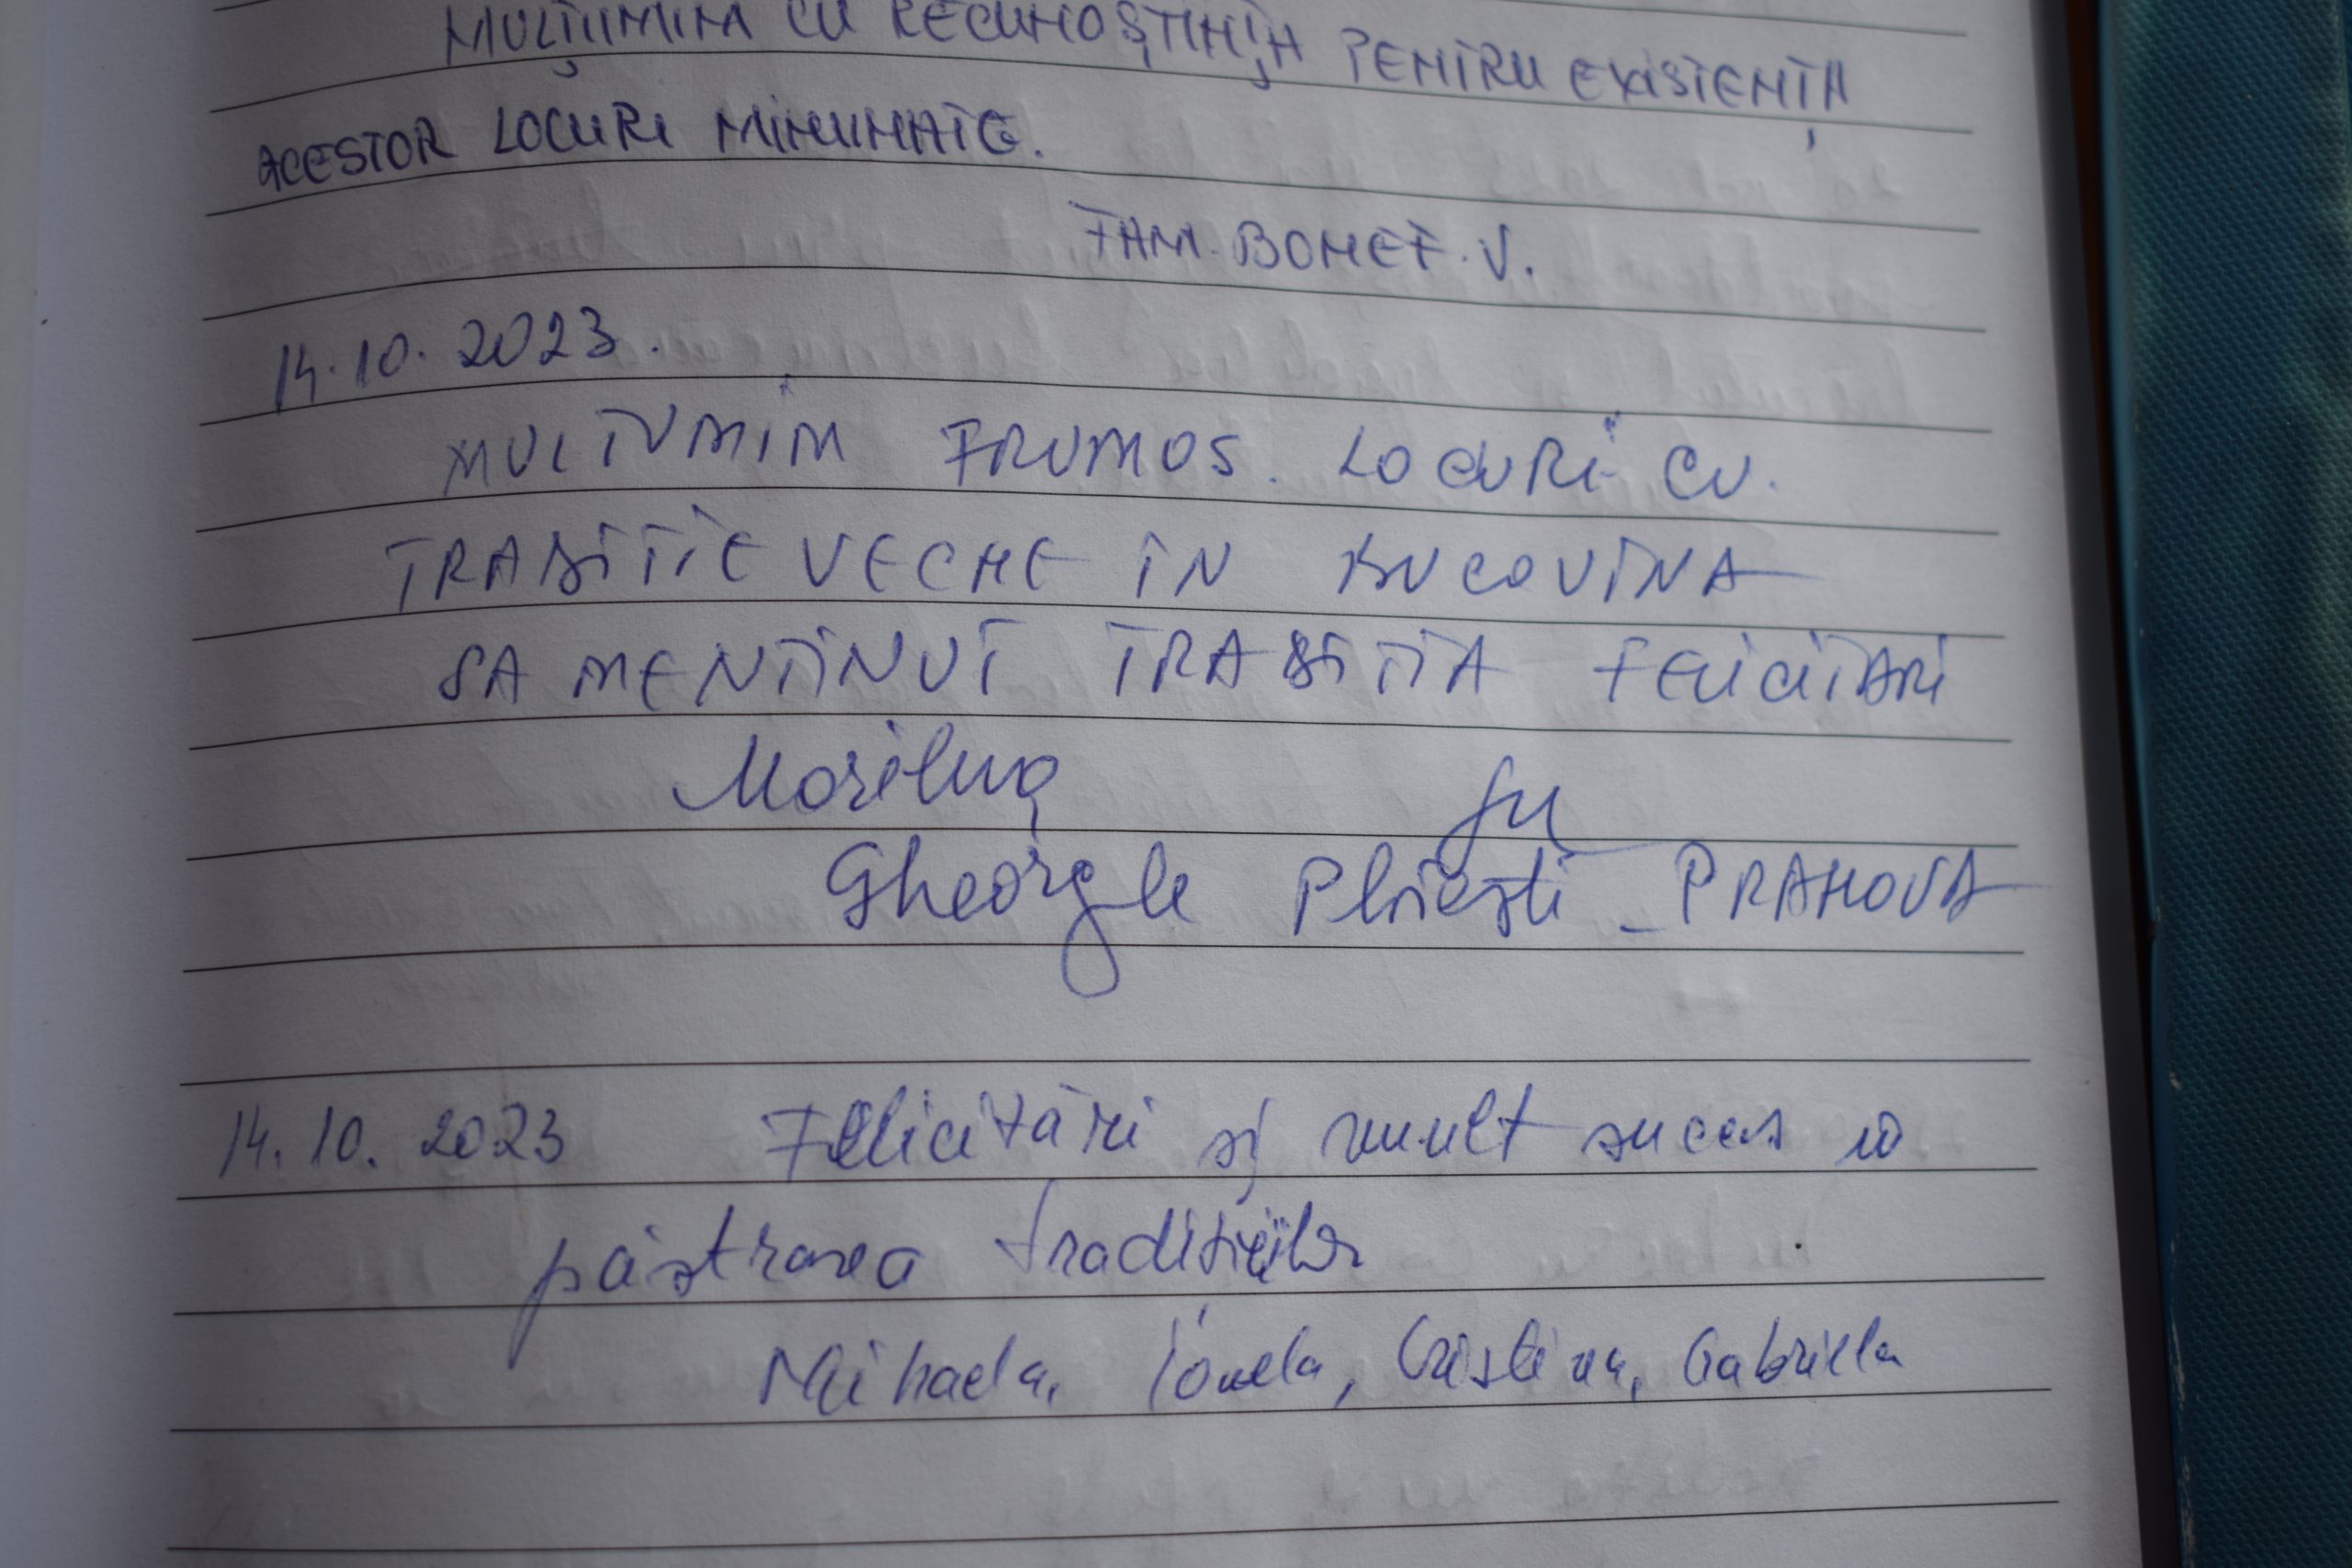 MULȚUMIM CU RECUNOȘTINȚA PENTRU EXISTENȚA
ACESTOR LOCURI MINUNATE.
FAM. BONEF. V.
14.10.2023.
MULTUMIM FRUMOS. LOCURI CU.
TRADITIE VECHE IN BUCOVINA
SA MENTINUT TRADITIA FELICITARI
Gheorghe Ploiesti - PRAHOVA
14.10.2023 Felicitări și mult succes în
păstrarea tradițiilor
Mihaela, Ionela, Cristina, Gabriella